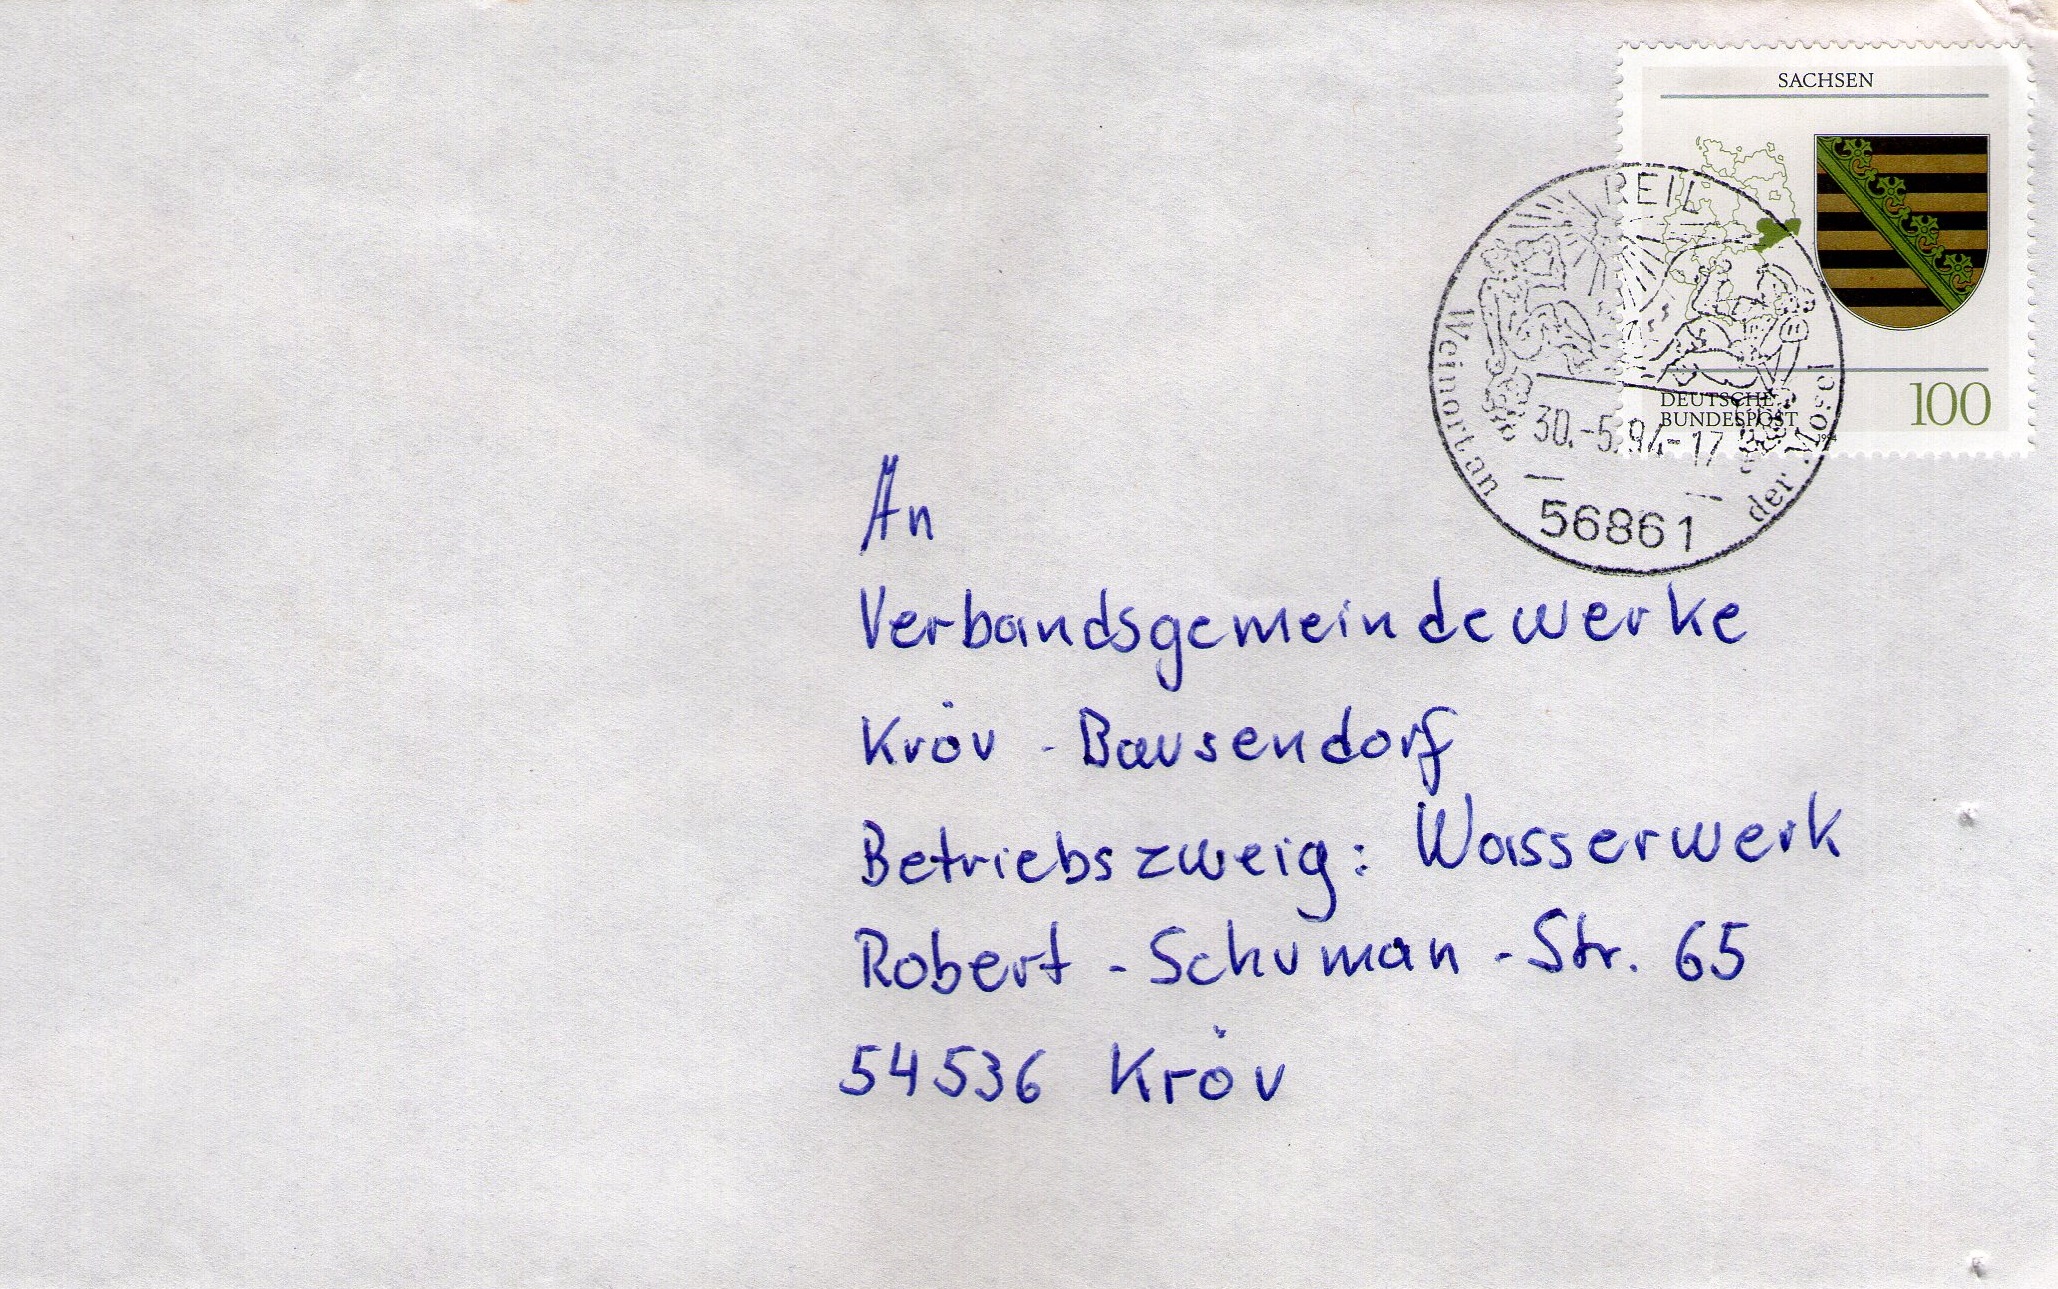 SACHSEN
DEUTSCHE
BUNDESPOST
100
1994
REIL
Weinort an der Mosel
30.-5.94-17
56861
An
Verbandsgemeindewerke
Kröv - Bausendorf
Betriebszweig: Wasserwerk
Robert - Schuman - Str. 65
54536 Kröv